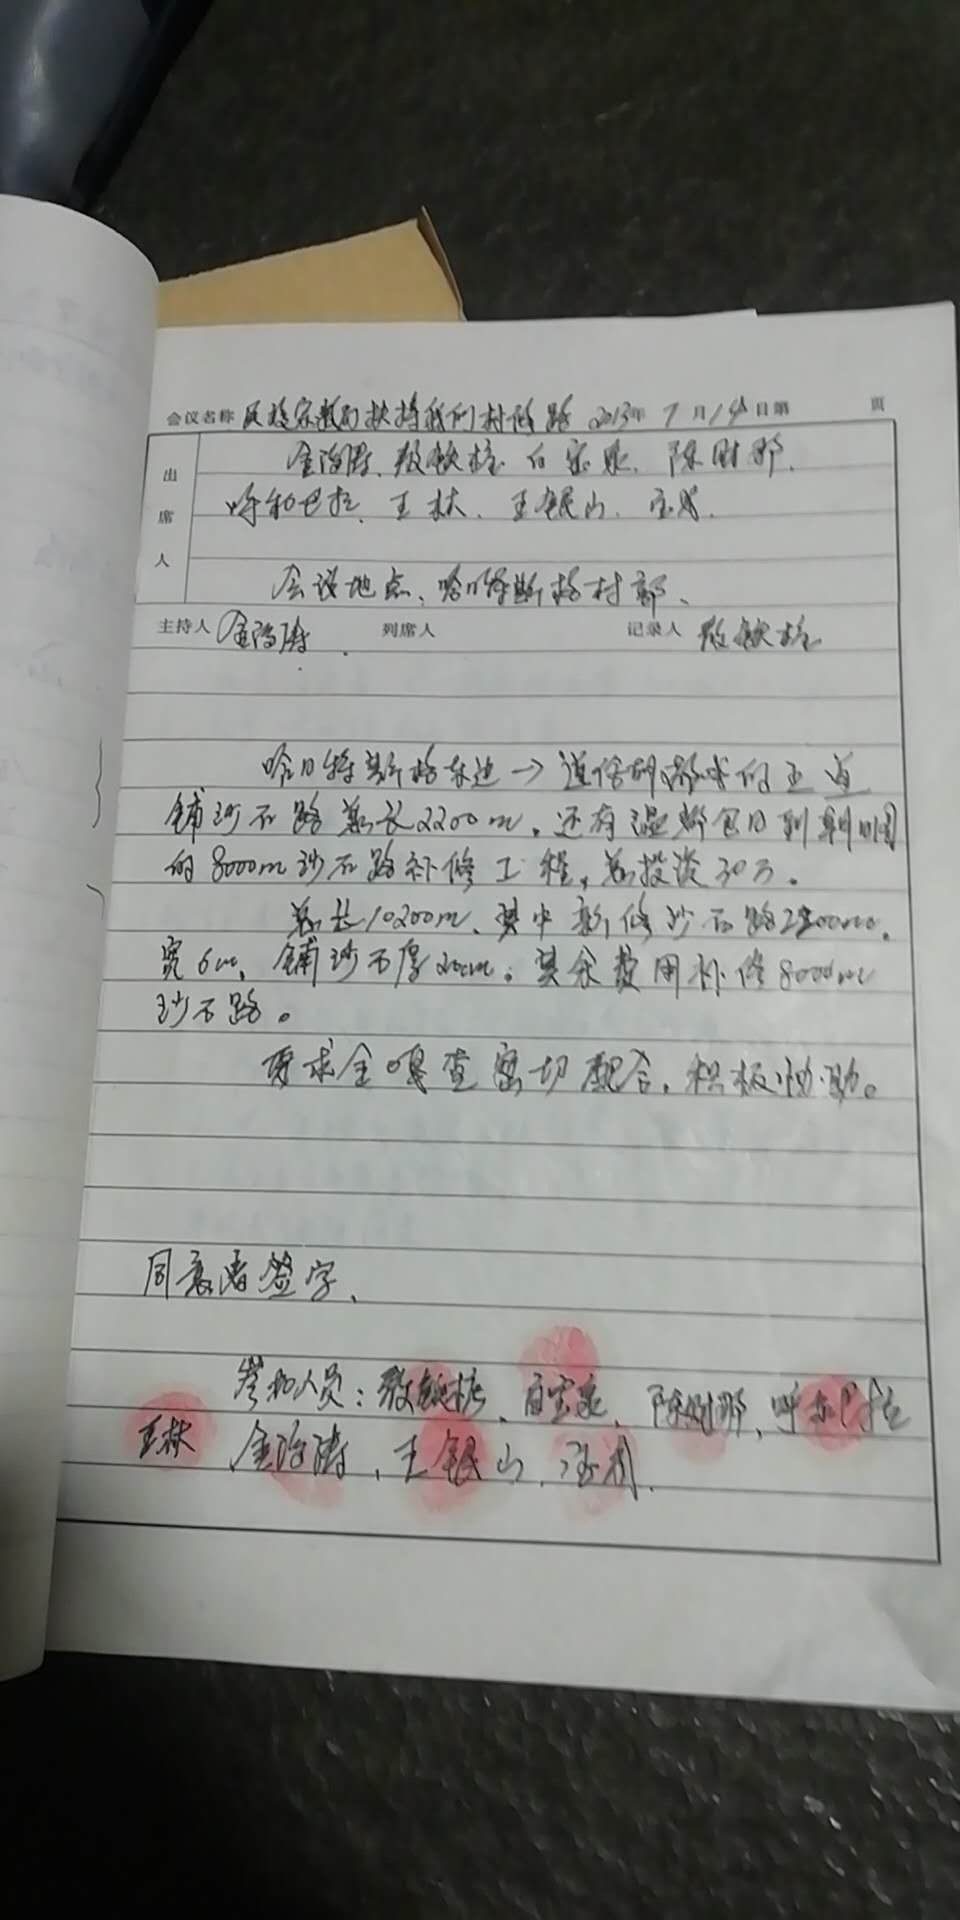 会议名称 民族宗教局扶持我们村修路 2013年7月14日第 页
出席人
金海涛、敖铁柱、白宝泉、陈财那、
呼和巴拉、王林、王银山、宝
会议地点、哈日特斯格村部、
主持人 金海涛 列席人 记录人 敖铁柱
哈日特斯格东边→道
铺沙石路总长2200m,还有温都包日到
的8000m沙石路补修工程,总投资30万。
总长10200m、其中新修沙石路2200m、
宽6m、铺沙石厚20cm。其余费用补修8000m
沙石路。
要求全嘎查密切配合,积极协助。
同意者签字、
参加人员:敖铁柱、白宝泉、陈财那、呼和巴拉
王林 金海涛、王银山、宝